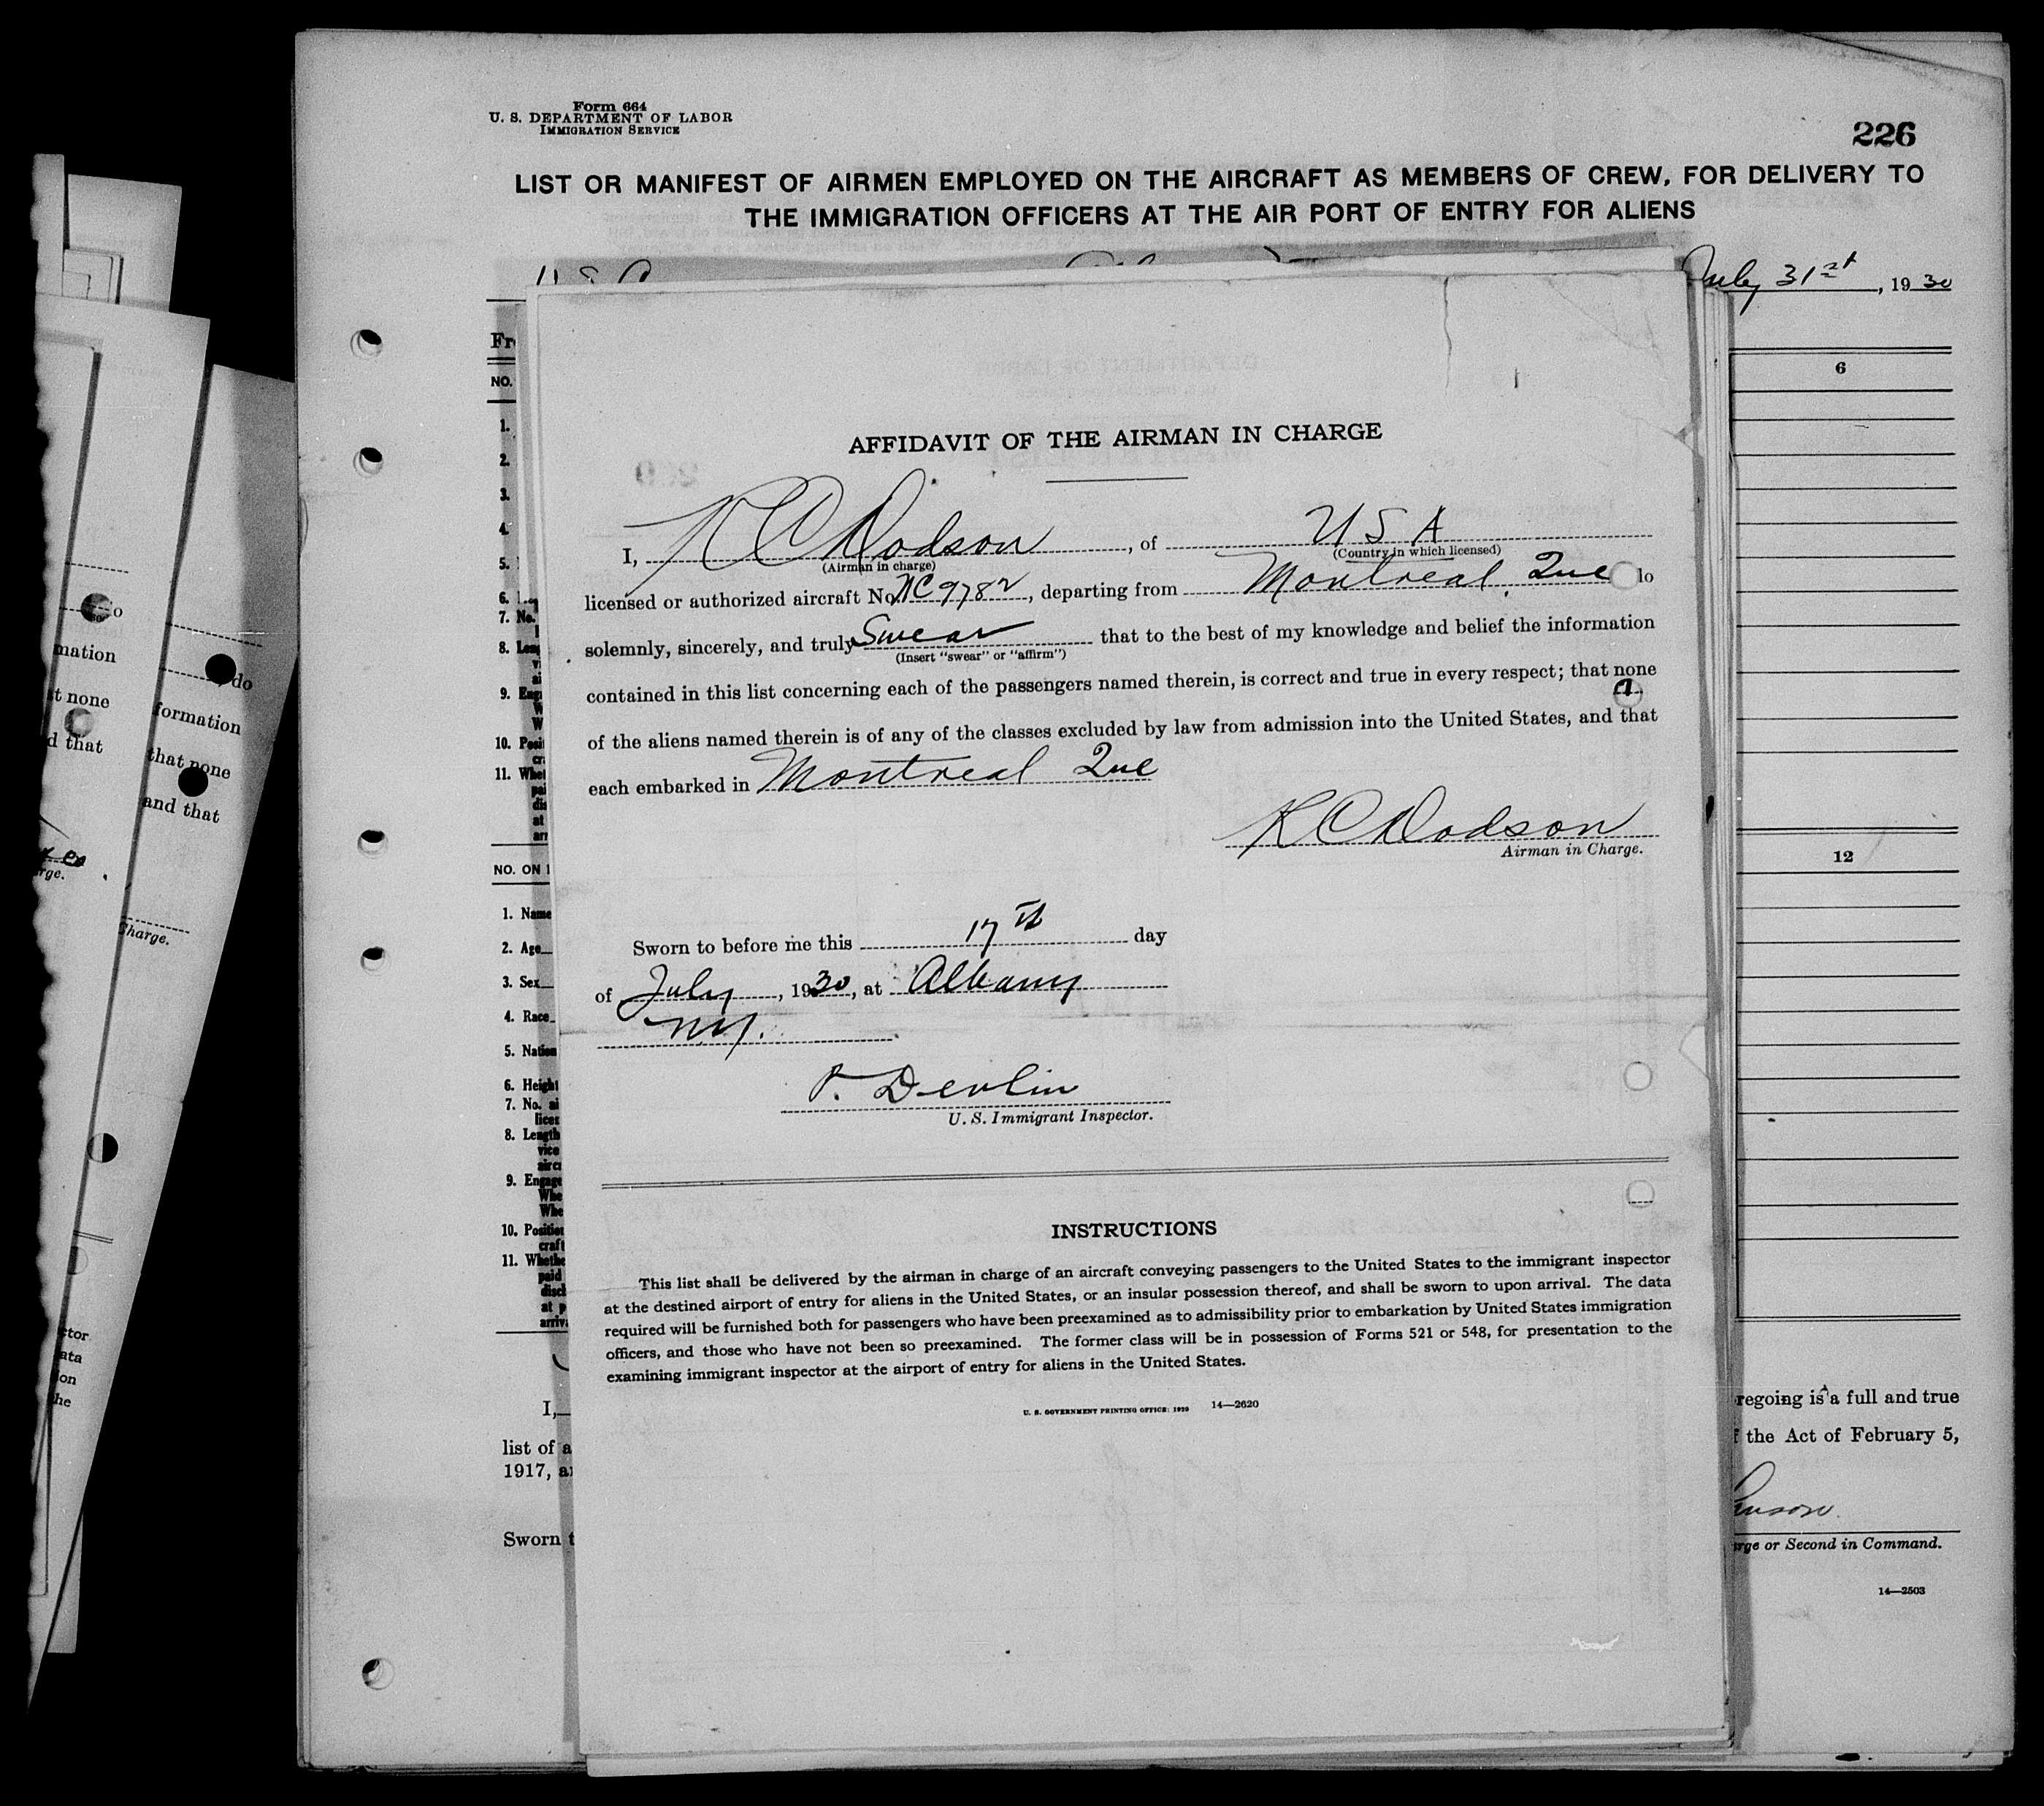 Form 664
U. S. DEPARTMENT OF LABOR
IMMIGRATION SERVICE
226
LIST OR MANIFEST OF AIRMEN EMPLOYED ON THE AIRCRAFT AS MEMBERS OF CREW, FOR DELIVERY TO
THE IMMIGRATION OFFICERS AT THE AIR PORT OF ENTRY FOR ALIENS
July 31st, 1930
NO.
6
1.
2.
3.
4.
5.
6.
7. No.
8.
9.
10.
11.
12
NO. ON
1. Name
2. Age
3. Sex
4. Race
5.
6. Height
7. No.
8. Length
vice
9.
10.
craft
11.
paid
at
AFFIDAVIT OF THE AIRMAN IN CHARGE
I, K C Dodson, of U S A
(Airman in charge) (Country in which licensed)
licensed or authorized aircraft No. NC 9782, departing from Montreal, Que
solemnly, sincerely, and truly Swear that to the best of my knowledge and belief the information
(Insert "swear" or "affirm")
contained in this list concerning each of the passengers named therein, is correct and true in every respect; that none
of the aliens named therein is of any of the classes excluded by law from admission into the United States, and that
each embarked in Montreal Que
K C Dodson
Airman in Charge.
Sworn to before me this 17th day
of July, 1930, at Albany
NY.
P. Devlin
U. S. Immigrant Inspector.
INSTRUCTIONS
This list shall be delivered by the airman in charge of an aircraft conveying passengers to the United States to the immigrant inspector
at the destined airport of entry for aliens in the United States, or an insular possession thereof, and shall be sworn to upon arrival. The data
required will be furnished both for passengers who have been preexamined as to admissibility prior to embarkation by United States immigration
officers, and those who have not been so preexamined. The former class will be in possession of Forms 521 or 548, for presentation to the
examining immigrant inspector at the airport of entry for aliens in the United States.
U. S. GOVERNMENT PRINTING OFFICE: 1929 14—2620
I,
regoing is a full and true
list of a
the Act of February 5,
1917,
Sworn
or Second in Command.
14—2503
o
mation
none
that
do
formation
that none
and that
Charge.